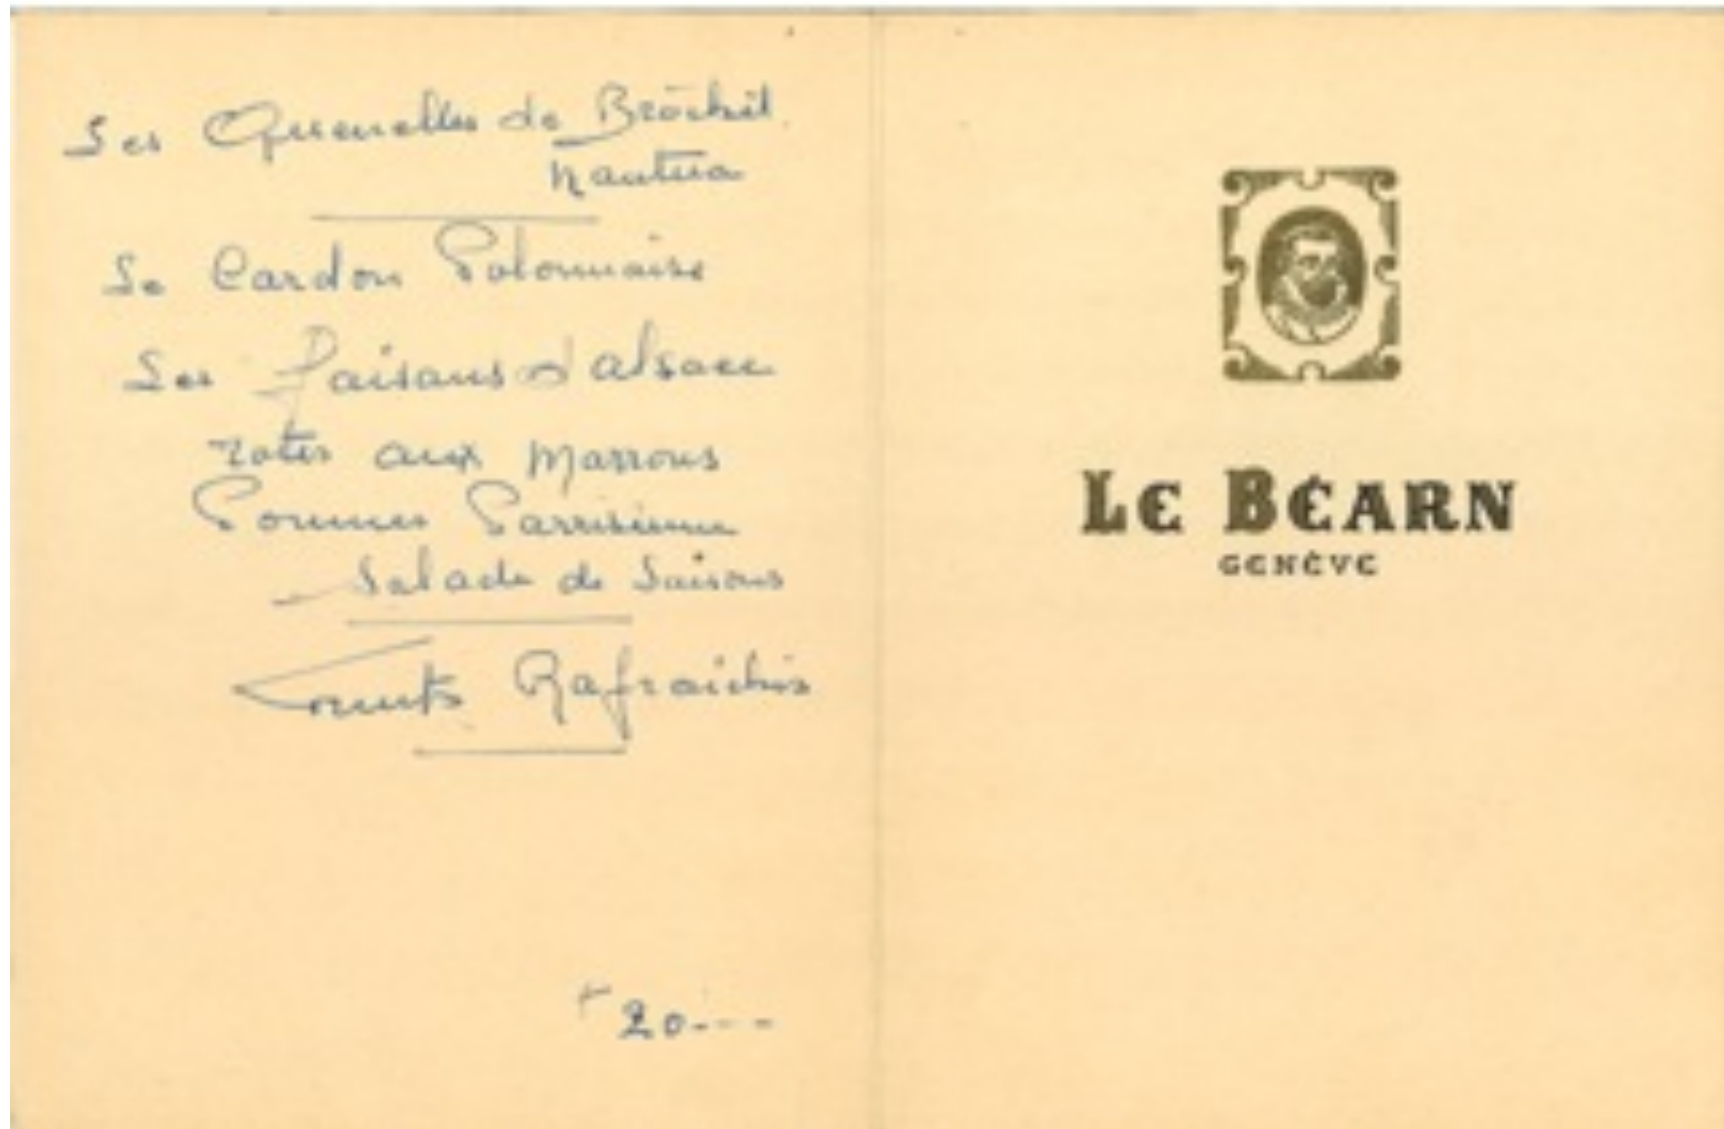 Les Quenelles de Brochet
Nantua
Le Cardon Polonnaise
Les Faisans d'alsace
rotis aux Marrons
Pommes Parrisienne
Salade de Saisons
Fruits Rafraichis
20.---
LE BÉARN
GENÈVE